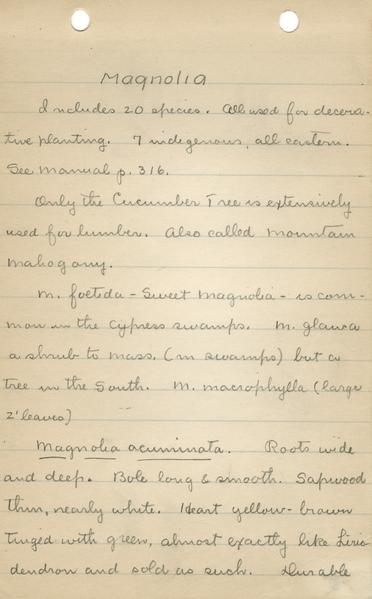 Magnolia
Includes 20 species. All used for decora-
tive planting. 7 indigenous, all eastern.
See Manual p. 316.
Only the Cucumber Tree is extensively
used for lumber. Also called Mountain
Mahogany.
M. foetida - Sweet Magnolia - is com-
mon in the cypress swamps. M. glauca
a shrub to Mass. (in swamps) but a
tree in the South. M. macrophylla (large
2' leaves)
Magnolia acuminata. Roots wide
and deep. Bole long & smooth. Sapwood
thin, nearly white. Heart yellow-brown
tinged with green, almost exactly like Lirio-
dendron and sold as such. Durable